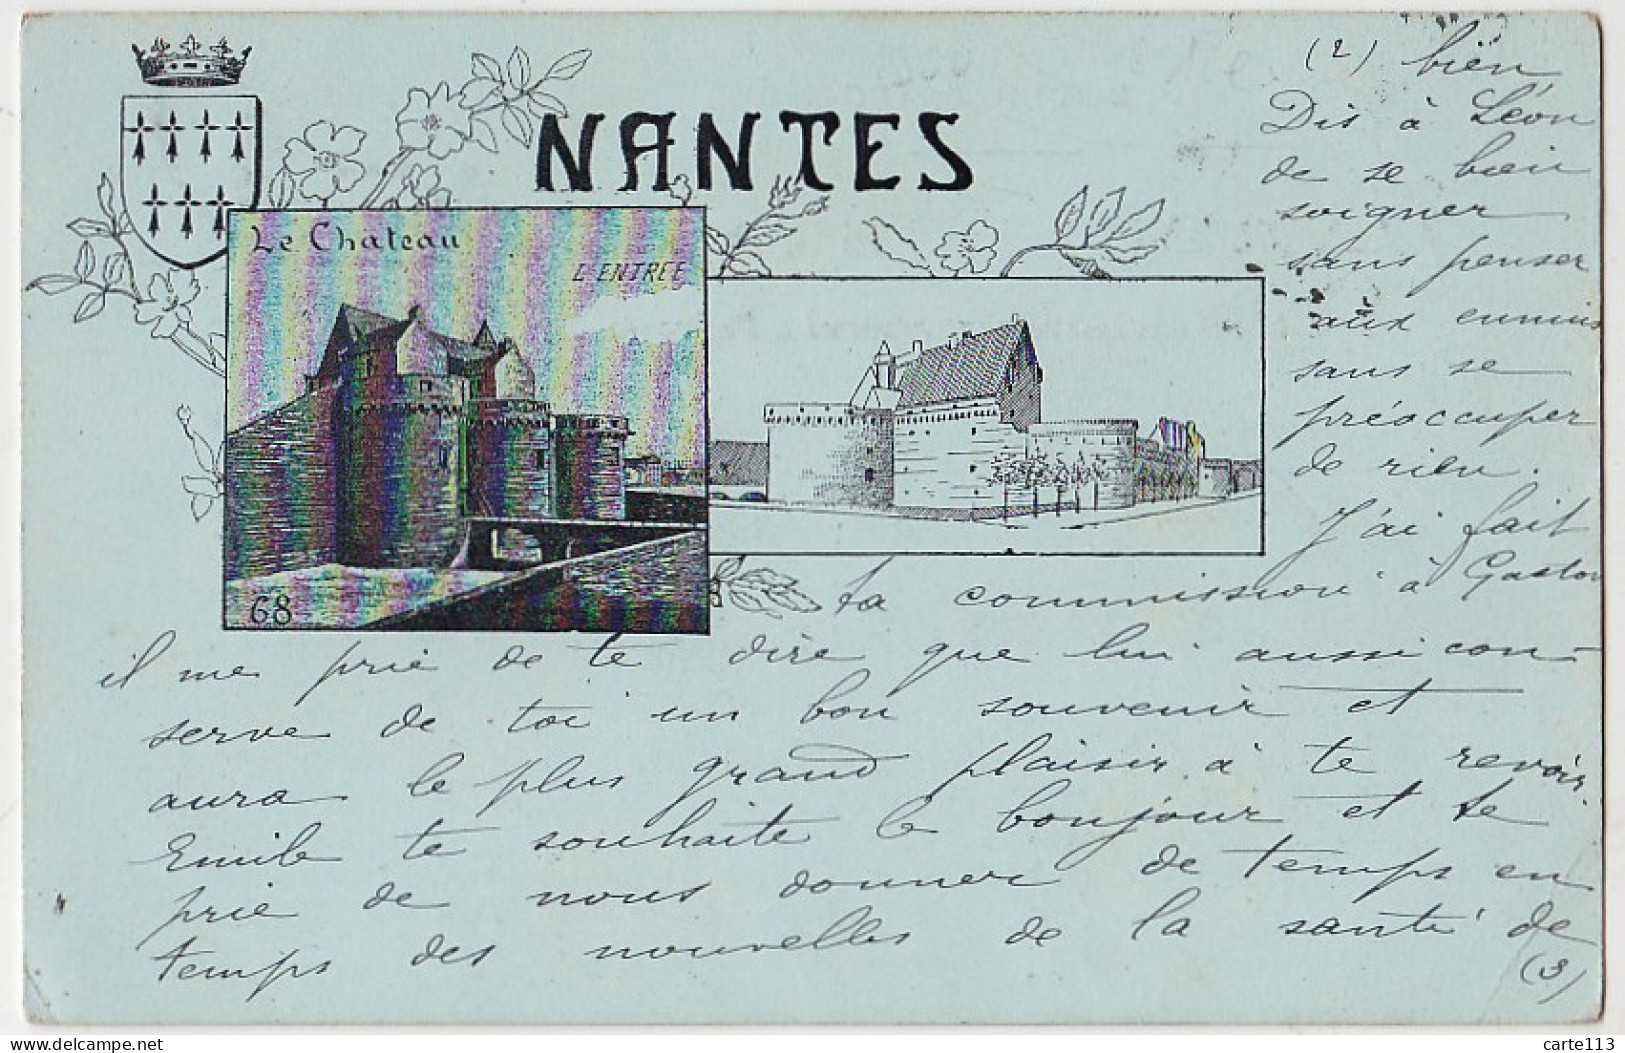 NANTES
Le Chateau
L'ENTREE
68
(2) bien
Dis à Léon
de se bien
soigner
sans penser
aux ennuis
sans se
préoccuper
de rien.
J'ai fait
ta commission à Gaston
il me prie de te dire que lui aussi con-
serve de toi un bon souvenir et
aura le plus grand plaisir à te revoir.
Emile te souhaite le bonjour et te
prie de nous donner de temps en
temps des nouvelles de la santé de
(3)
carte113